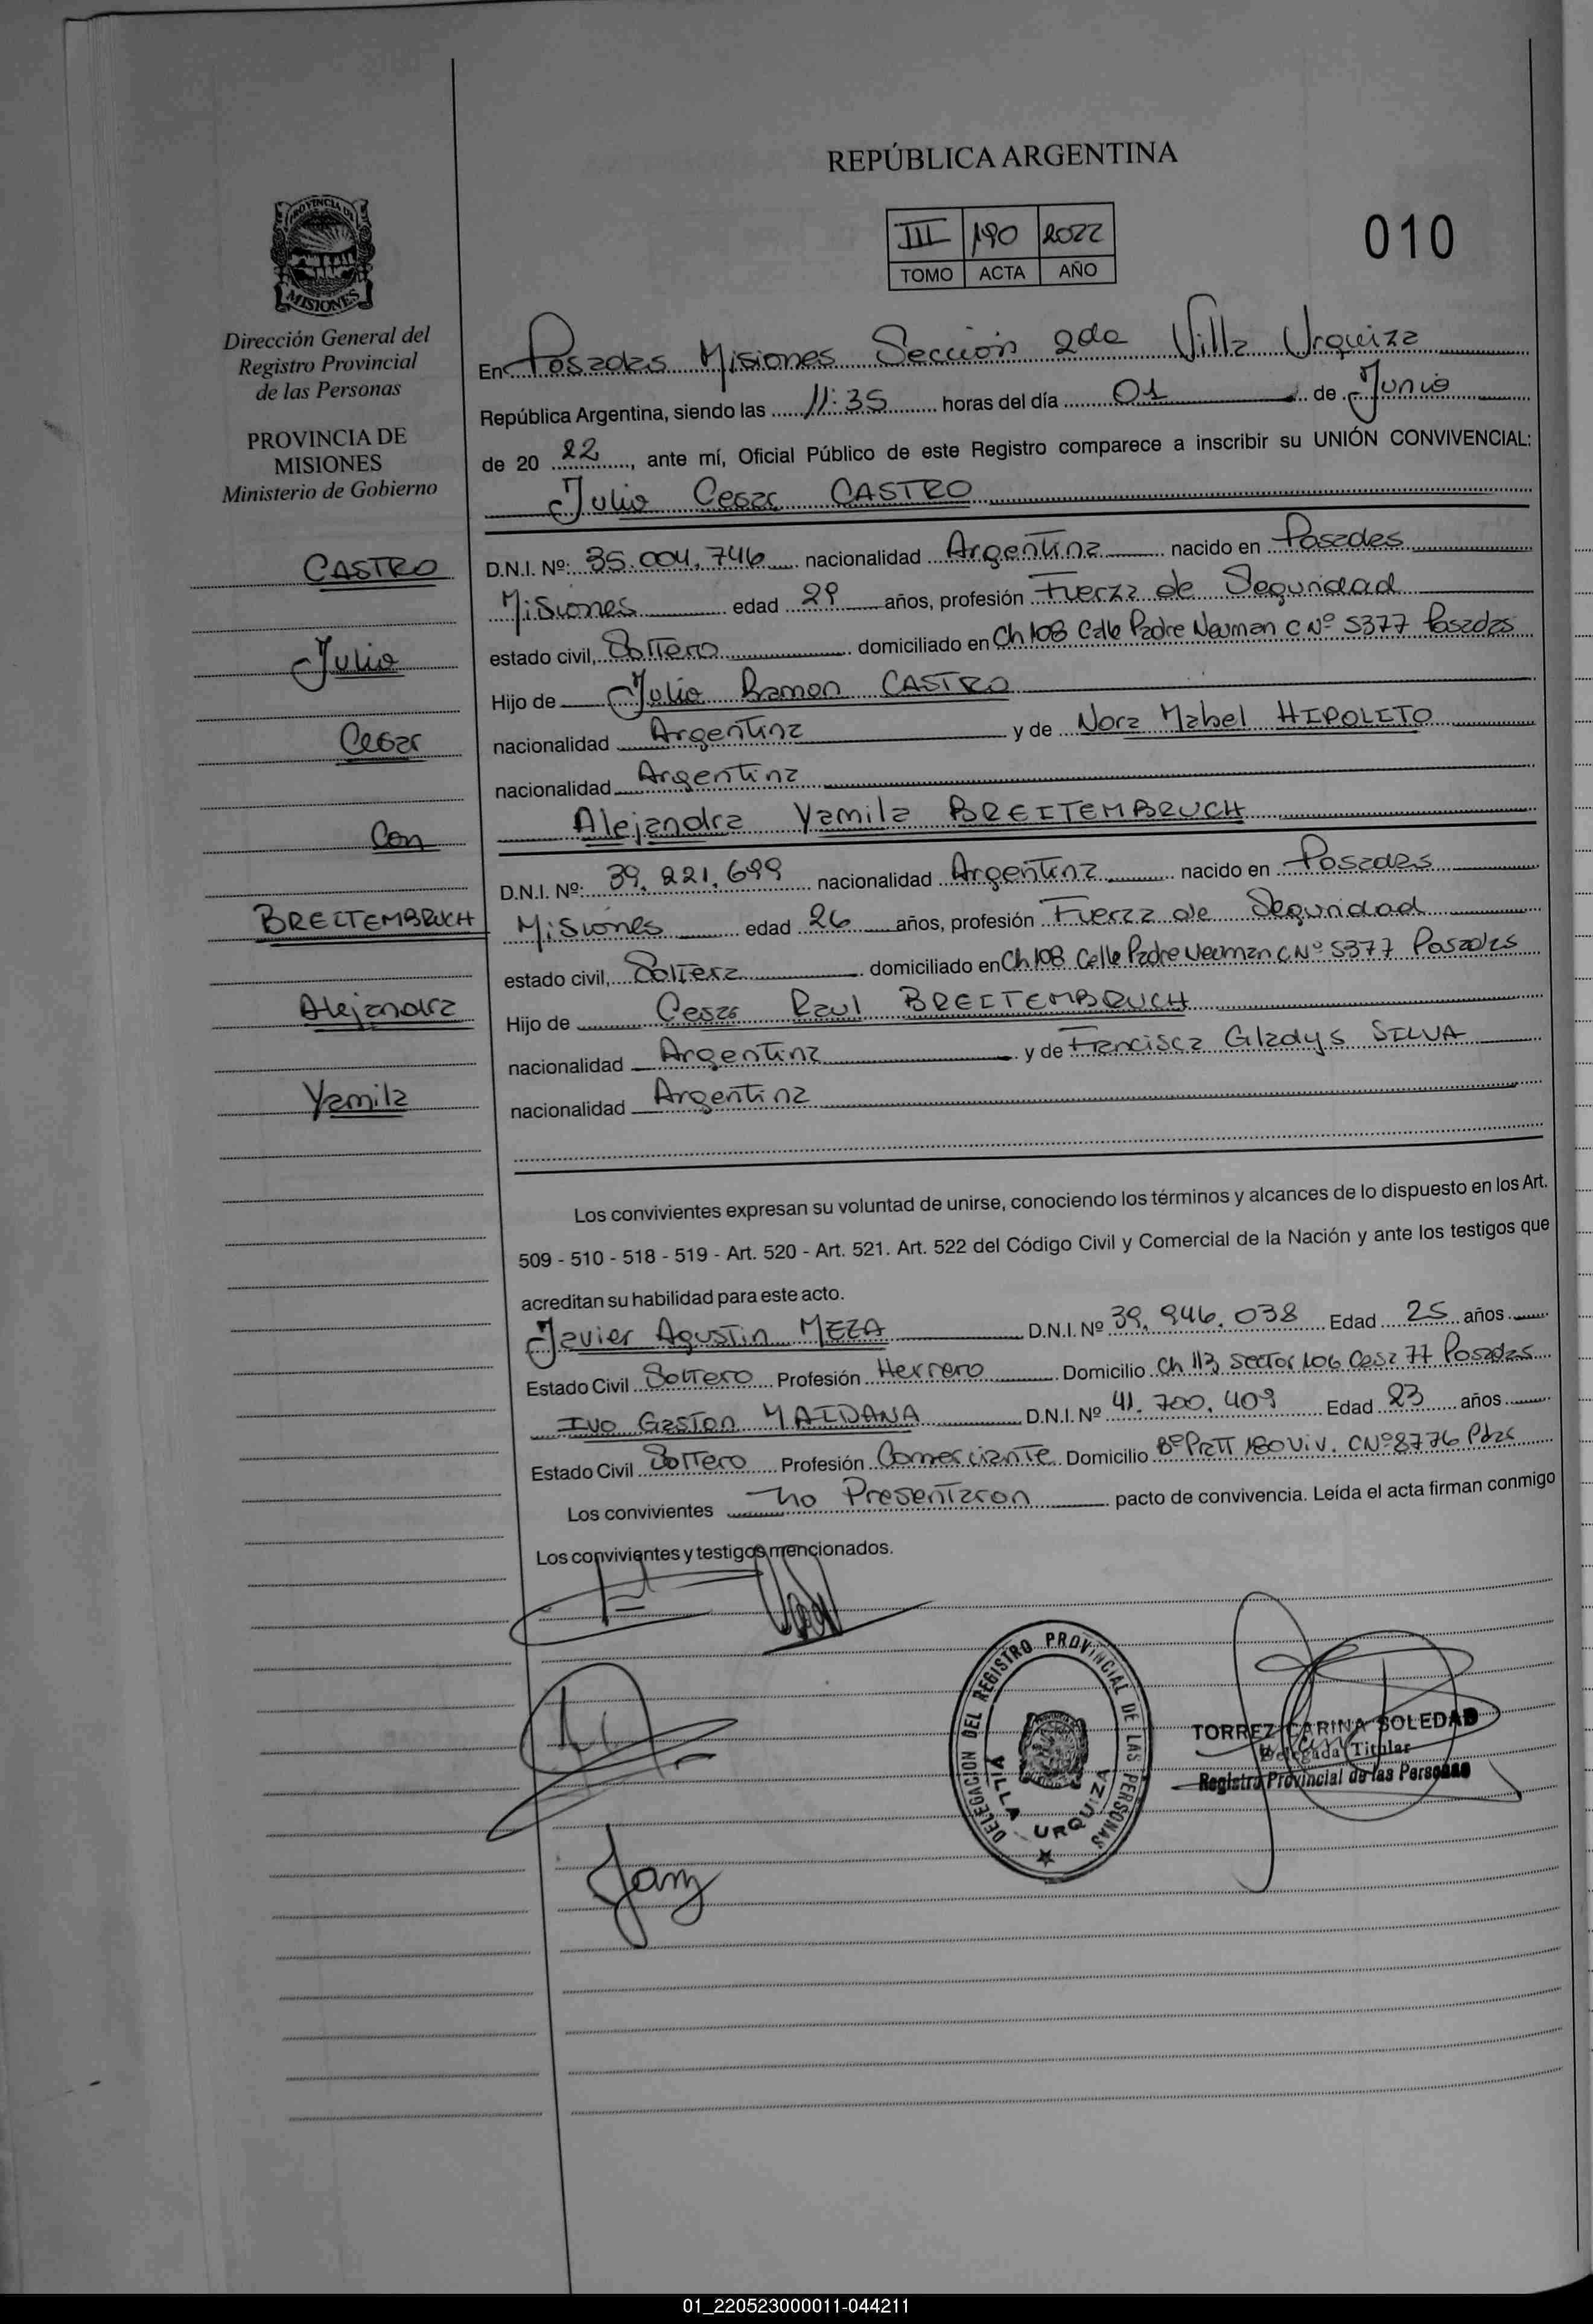 REPÚBLICA ARGENTINA
III 190 2022
TOMO ACTA AÑO
010
PROVINCIA DE
MISIONES
Dirección General del
Registro Provincial
de las Personas
PROVINCIA DE
MISIONES
Ministerio de Gobierno
CASTRO
Julio
Cesar
Con
BREITEMBRUCH
Alejandra
Yamila
En Posadas Misiones Sección 2da Villa Urquiza
República Argentina, siendo las 11:35 horas del día 01 de Junio
de 20 22, ante mí, Oficial Público de este Registro comparece a inscribir su UNIÓN CONVIVENCIAL:
Julio Cesar CASTRO
D.N.I. Nº: 35.004.746 nacionalidad Argentina nacido en Posadas
Misiones edad 29 años, profesión Fuerza de Seguridad
estado civil, Soltero domiciliado en Ch 108 Calle Padre Neuman C Nº 5377 Posadas
Hijo de Julio Ramon CASTRO
nacionalidad Argentina y de Nora Mabel HIPOLITO
nacionalidad Argentina
Alejandra Yamila BREITEMBRUCH
D.N.I. Nº: 39.221.699 nacionalidad Argentina nacido en Posadas
Misiones edad 26 años, profesión Fuerza de Seguridad
estado civil, Soltera domiciliado en Ch 108 Calle Padre Neuman C.Nº 5377 Posadas
Hijo de Cesar Raul BREITEMBRUCH
nacionalidad Argentina y de Francisca Gladys SILVA
nacionalidad Argentina
Los convivientes expresan su voluntad de unirse, conociendo los términos y alcances de lo dispuesto en los Art.
509 - 510 - 518 - 519 - Art. 520 - Art. 521. Art. 522 del Código Civil y Comercial de la Nación y ante los testigos que
acreditan su habilidad para este acto.
Javier Agustin MEZA D.N.I. Nº 39.946.038 Edad 25 años
Estado Civil Soltero Profesión Herrero Domicilio Ch 113 Sector 106 Casa 77 Posadas
Ivo Gaston MAIDANA D.N.I. Nº 41.700.409 Edad 23 años
Estado Civil Soltero Profesión Comerciante Domicilio Bº Pratt 180 Viv. C Nº 8776 Pdas
Los convivientes no Presentaron pacto de convivencia. Leída el acta firman conmigo
Los convivientes y testigos mencionados.
DELEGACION DEL REGISTRO PROVINCIAL DE LAS PERSONAS
VILLA URQUIZA
TORREZ CARINA SOLEDAD
Delegada Titular
Registro Provincial de las Personas
01_220523000011-044211